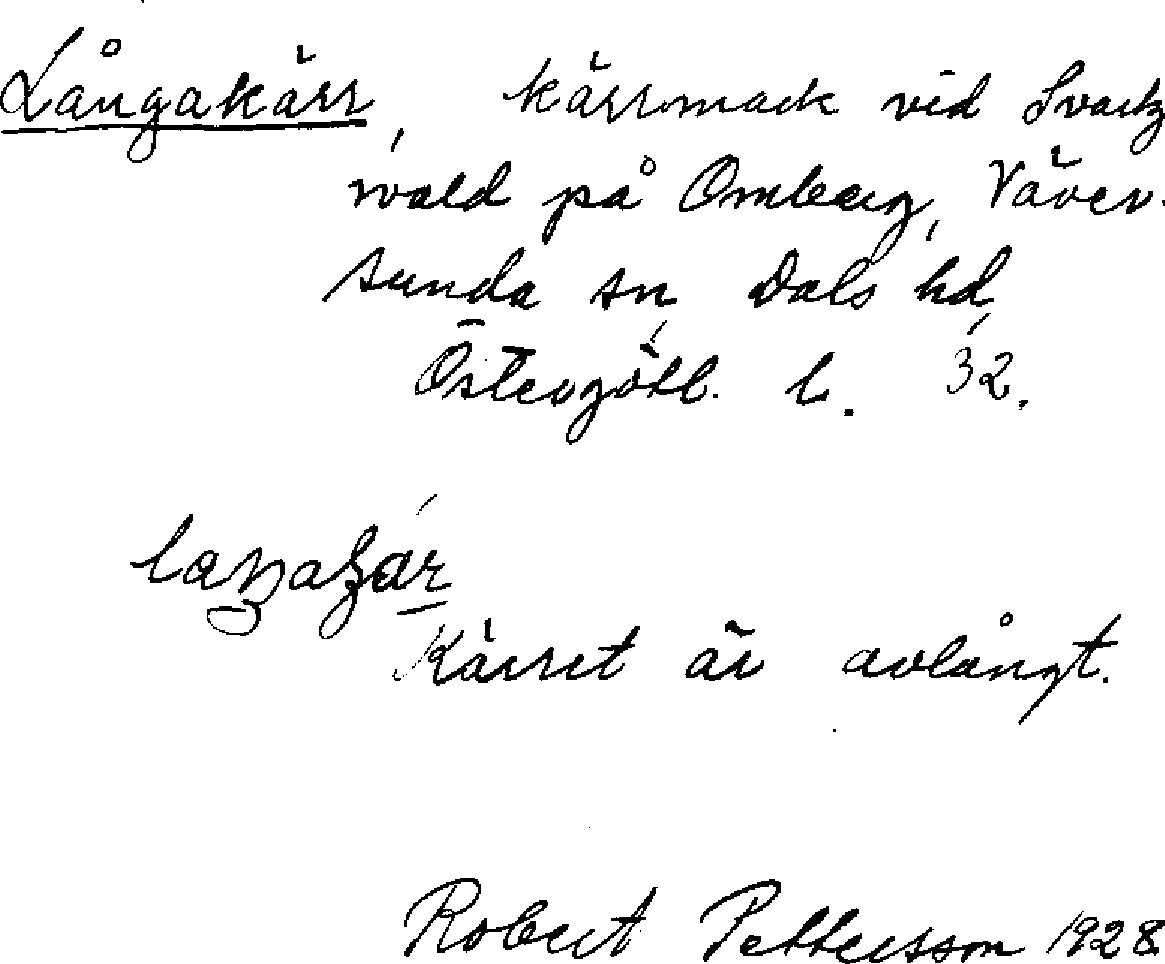 Långakärr, kärrmark vid Svartz
wald på Omberg, Väver-
sunda sn, Dals hd,
Östergötl. l. 32.
Kärret är avlångt.
Robert Pettersson 1928